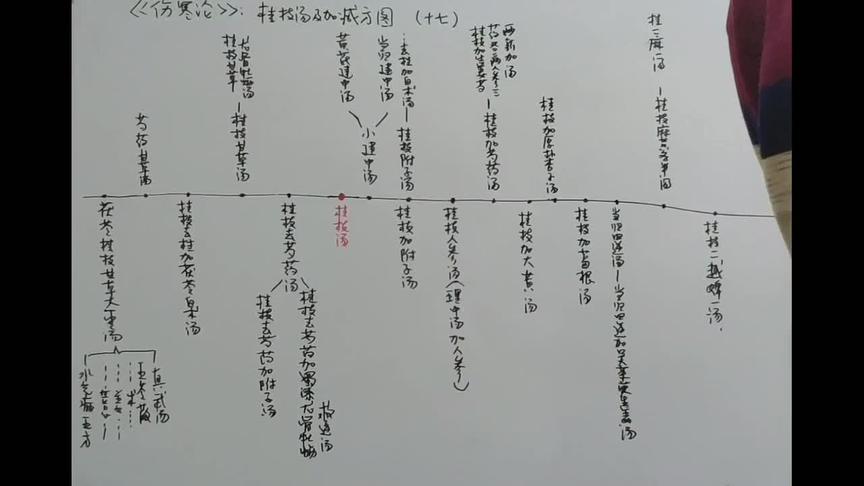 《《伤寒论》》: 桂枝汤及加减方图 (十七)
芍药甘草汤
桂枝甘草
龙骨牡蛎汤
桂枝甘草汤
黄芪建中汤
当归建中汤
小建中汤
去桂加白术汤
桂枝附子汤
桂枝加芍药
生姜各一两人参三两新加汤
桂枝加芍药汤
桂枝加厚朴杏子汤
桂二麻一汤
桂枝麻黄各半
茯苓桂枝甘草大枣汤
真武汤
五苓散
水气病五方
桂枝去桂加茯苓白术汤
桂枝去芍药汤
桂枝去芍药加附子汤
桂枝去芍药加蜀漆龙骨牡蛎
救逆汤
桂枝汤
桂枝加附子汤
桂枝人参汤(理中汤加人参)
桂枝加大黄汤
桂枝加葛根汤
当归四逆汤
当归四逆加吴茱萸生姜汤
桂枝二越婢一汤